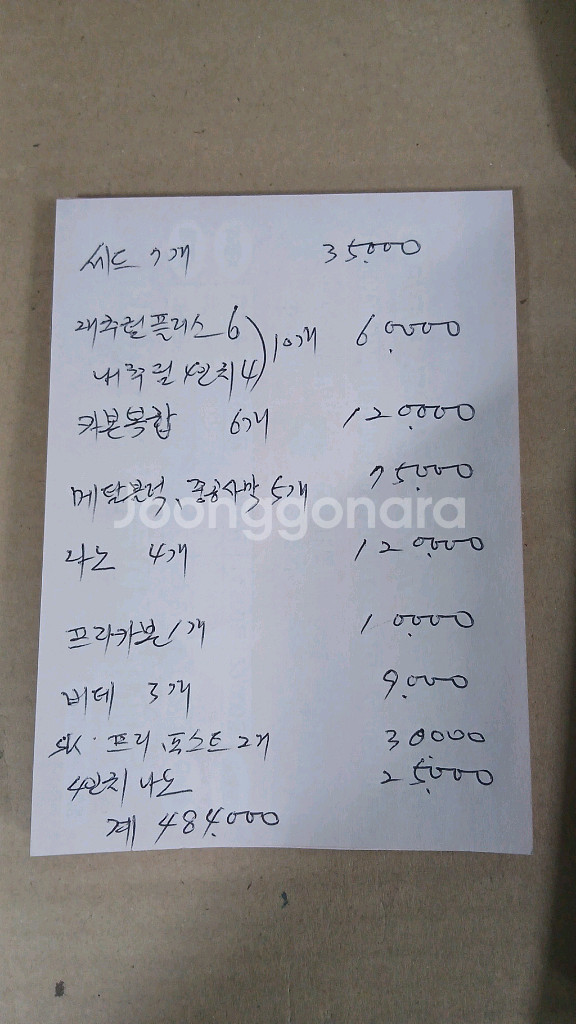 쎄드 7개 35,000
내추럴플러스 6
10개 60,000
내추럴 4인치 4
카본복합 6개 120,000
메탈블럭, 중공사막 5개 75,000
Joonggonara
나노 4개 120,000
프라카본 1개 10,000
버테 3개 9,000
SK. 프리, 포스트 2개 30,000
4인치 나노 25,000
계 484,000